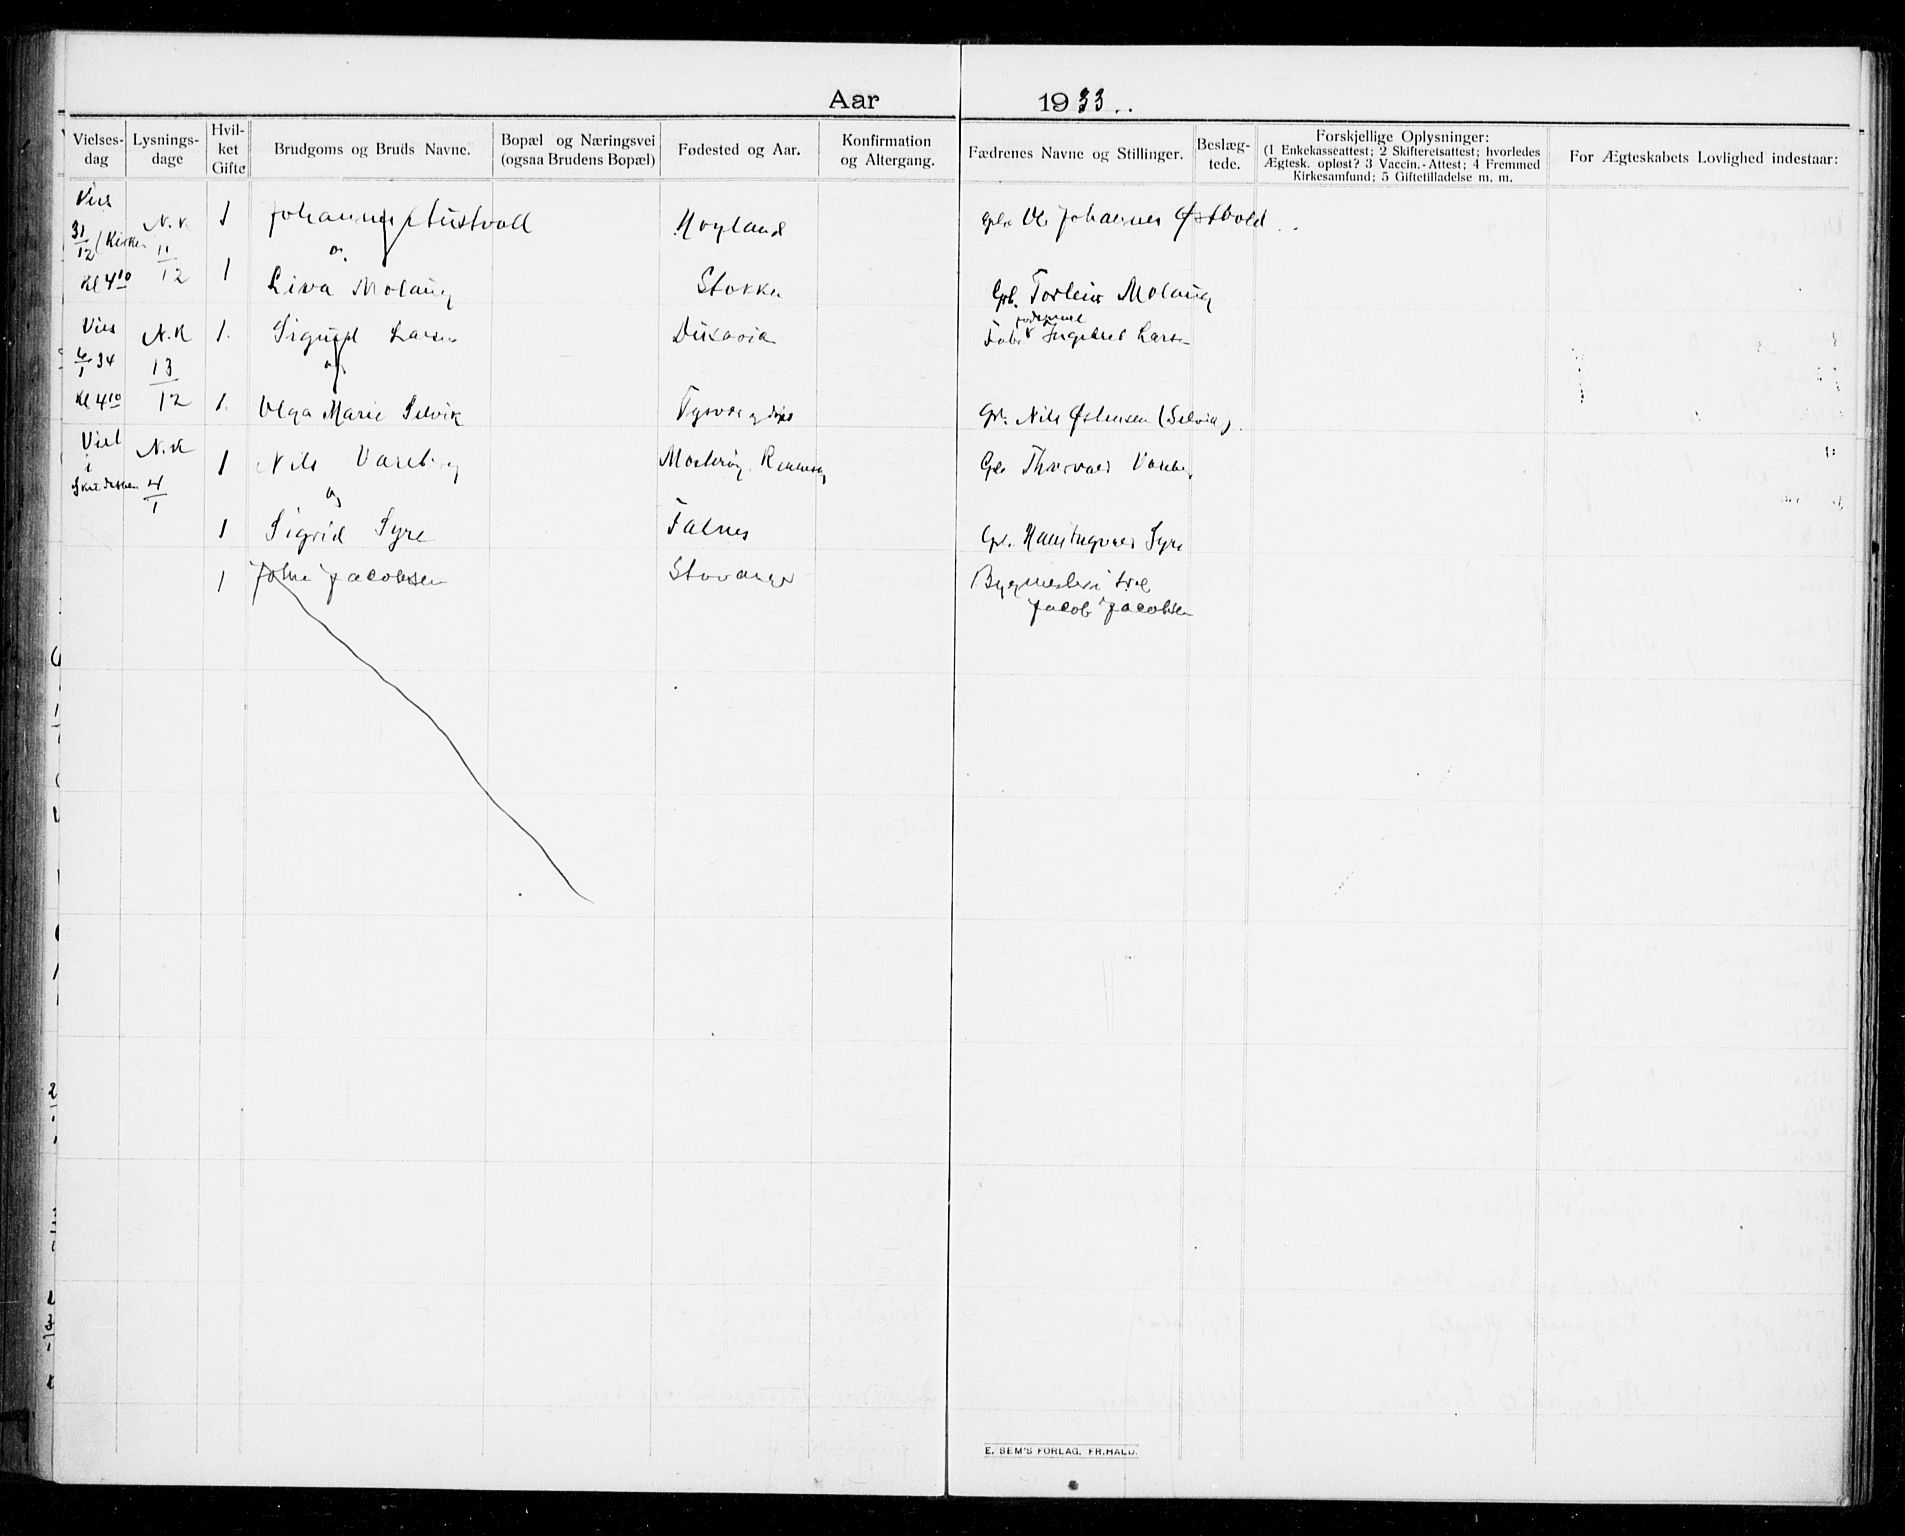 Aar 1933.
Vielses-
dag
Lysnings-
dage
Hvil-
ket
Gifte
Brudgoms og Bruds Navne.
Bopæl og Næringsvei
(ogsaa Brudens Bopæl)
Fødested og Aar.
Konfirmation
og Altergang.
Fædrenes Navne og Stillinger.
Beslæg-
tede.
Forskjellige Oplysninger:
(1 Enkekasseattest; 2 Skifteretsattest; hvorledes
Ægtesk. opløst? 3 Vaccin.-Attest; 4 Fremmed
Kirkesamfund; 5 Giftetilladelse m. m.
For Ægteskabets Lovlighed indestaar:
Vies 31/12 Kirken Kl 4 10 N.K 11/12 1 Johannes Austvoll Høyland Johannes Østbold
og
1 Liva Molaug Stokke Gbr. Torleiv Molaug
Vies 6/1 34 Kl 4 10 N.K 13/12 1. Sigurd Larsen Dusavik Ingebret Larsen
og
1. Olga Marie Selvik Tysvær Gbr. Nils Østensen (Selvik).
Viet i N.K 4/1 1 Nils Mosterøy, Gbr
og
1 Sigrid Syre Falnes Gbr. Syre
1 Jacobsen Stavanger Bygmester
Jacob Jacobsen
E. SEM'S FORLAG, FR.HALD.